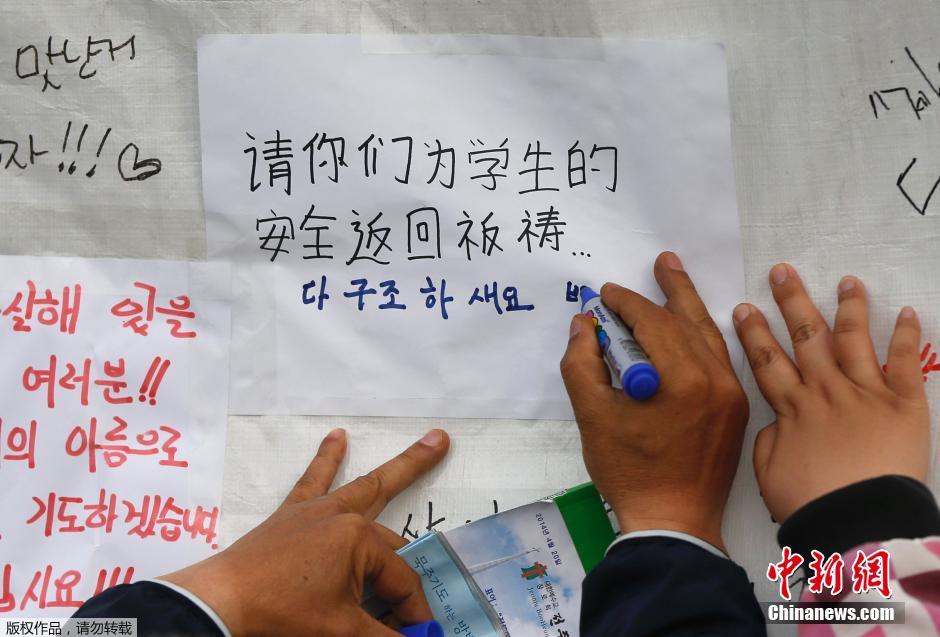 맞난거
자!!! ♡
请你们为学生的
安全返回祈祷...
다 구조 하 새요
살해 있을
여러분!!
의 아름으로
기도하겠습니다
십시요!!!
2014년 4월 20일
묵주기도 하는 방
중新网
Chinanews.com
版权作品,请勿转载